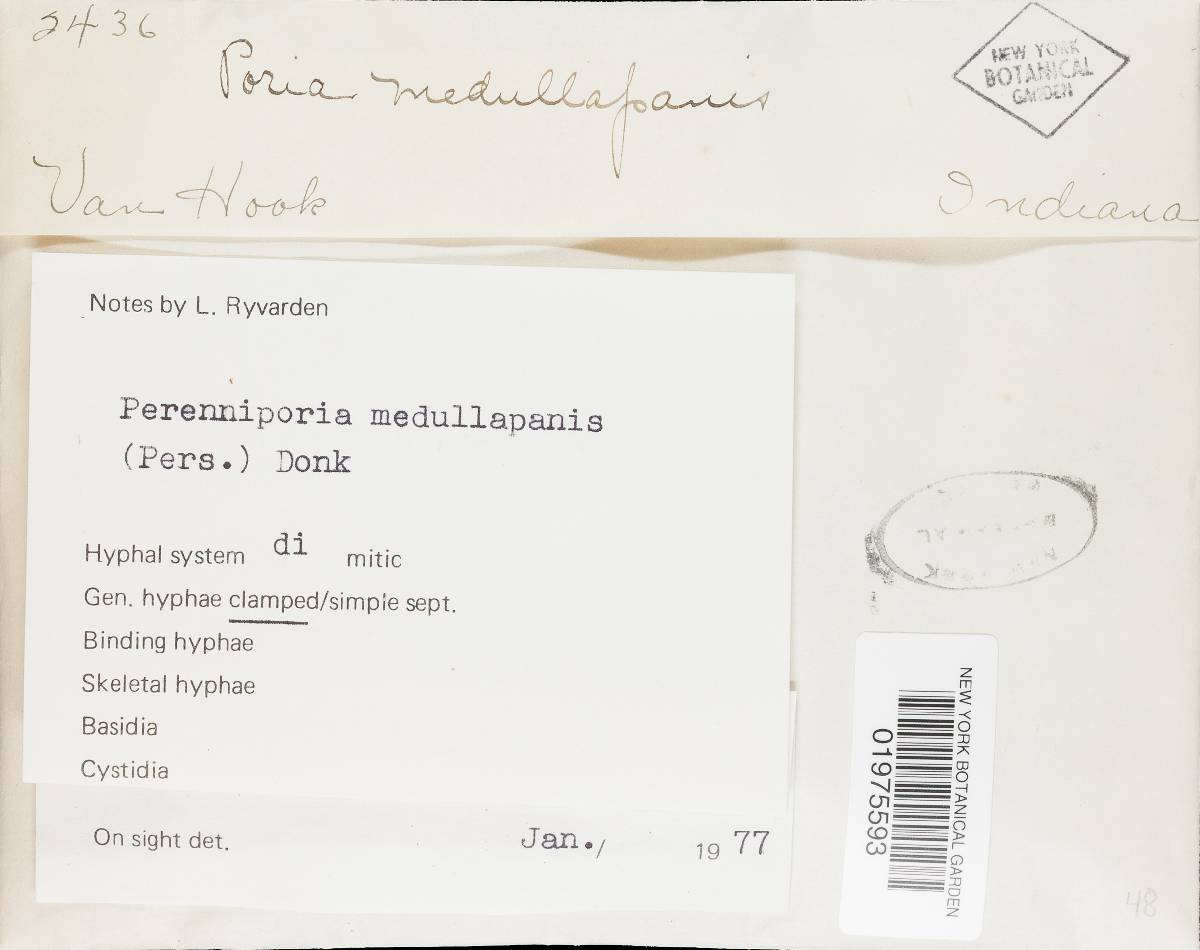 2436
Poria medullapanis
NEW YORK
BOTANICAL
GARDEN
Van Hook
Indiana
Notes by L. Ryvarden
Perenniporia medullapanis
(Pers.) Donk
Hyphal system di mitic
Gen. hyphae clamped/simple sept.
Binding hyphae
Skeletal hyphae
Basidia
Cystidia
On sight det. Jan./ 1977
NEW YORK BOTANICAL GARDEN
01975593
48